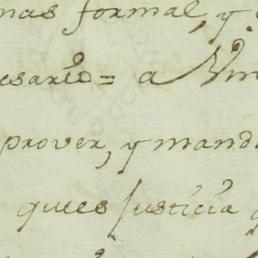 mas formal, y
esario = a Vm
prover, y mand
quees Justicia